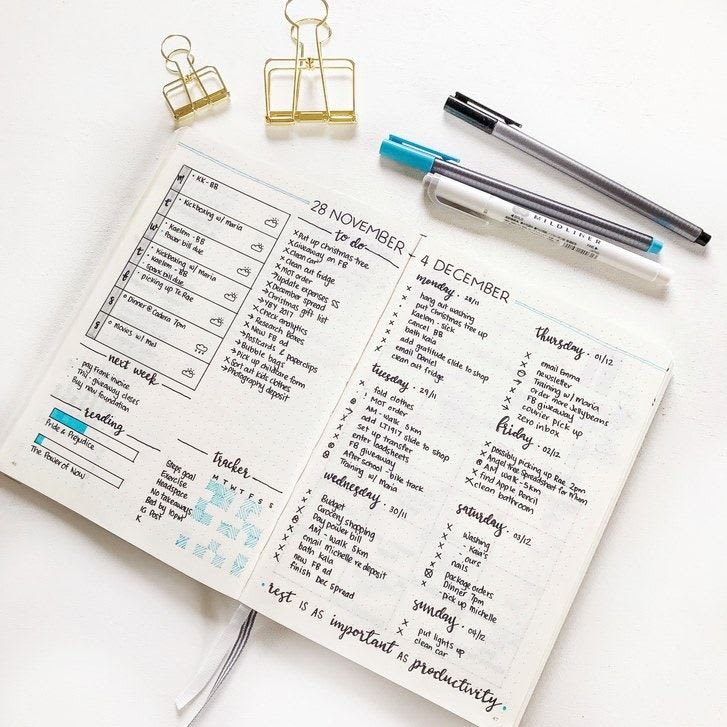 28 NOVEMBER
m
• KK - BB
t
• Kickboxing w/ maria
w
• Kaelem - BB
• Power bill due
t
• Kickboxing w/ maria
• Kaelem - BB
Spark bill due
f
• picking up Te Rae
s
° Dinner @ Cadera 7pm
s
° Movies w/ Mel
next week
pay Frank invoice
TMJ giveaway closes
Buy new foundation
reading
Pride & Prejudice
The Power of Now
to do
× Put up Christmas tree
× Giveaway on FB
× Clean car
× Clean out fridge
× MOT order
→ Update expenses SS
× December spread
→ Christmas gift list
→ YBY 2017
× Check analytics
→ Research boxes
× New FB ad
→ Postcards & paperclips
→ Bubble bags
→ Pick up childcare form
× Sort out kids clothes
→ Photography deposit
tracker
M T W T F S S
Steps goal
Exercise
Headspace
No takeaways
Bed by 10pm
IG Post
K
46
4 DECEMBER
monday • 28/11
× hang out washing
× put christmas tree up
× Kaelem - sick
× cancel BB
× bath kaia
× add gratitude slide to shop
× email Daniel
× clean out fridge
tuesday • 29/11
× fold clothes
× MOT order
AM - walk 5km
add LT1917 slide to shop
× set up transfer
× enter loadsheets
× FB giveaway
After school - bike track
Training w/ Maria
wednesday • 30/11
× Budget
× Grocery shopping
× Pay power bill
AM - walk 5km
× email Michelle re deposit
× bath kaia
× new FB ad
× finish Dec Spread
thursday • 01/12
× email Emma
× newsletter
Training w/ maria
→ order more Jellybeans
× FB giveaway
× courier pick up
→ zero inbox
friday • 02/12
× possibly picking up Rae 2pm
× Angel tax Spreadsheet for Mum
AM walk - 5km
× find Apple Pencil
× clean bathroom
saturday • 03/12
× washing
× - Kaia
× - ours
× nails
package orders
× Dinner 7pm
- pick up michelle
sunday • 04/12
× put lights up
× clean car
• rest IS AS important AS productivity.
47
MILDLINER